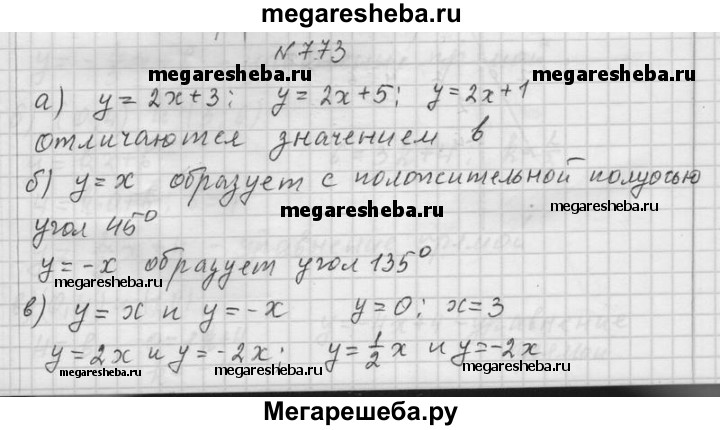 megaresheba.ru
N 773
megaresheba.ru megaresheba.ru
а) y = 2x+3; y = 2x+5; y = 2x+1
отличаются значением в
б) y = x образует с положительной полуосью
megaresheba.ru megaresheba.ru
угол 45°
y = -x образует угол 135°
megaresheba.ru megaresheba.ru
в) y = x и y = -x y = 0; x = 3
y = 2x и y = -2x; y = 1/2 x и y = -2x
megaresheba.ru megaresheba.ru
Мегарешеба.ру